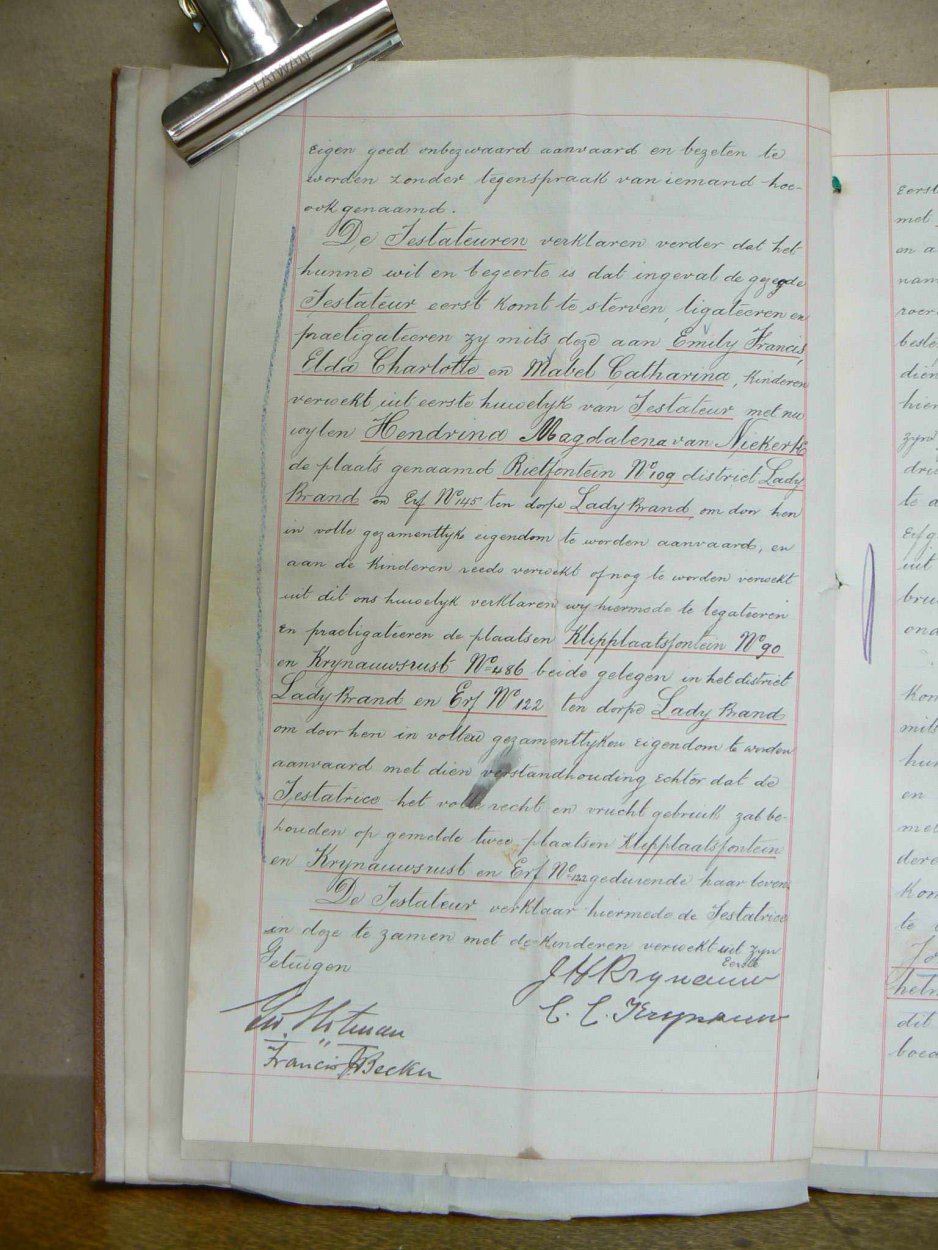 TAIWAN
eigen goed onbezwaard aanvaard en bezeten te
worden zonder tegenspraak van iemand hoe-
ook genaamd.
De Testateuren verklaren verder dat het
hunne wil en begeerte is dat ingeval de gezegde
Testateur eerst komt te sterven, ligateeren en
praeligateeren zy mits deze aan Emily Francis,
Elda Charlotte en Mabel Catharina, kinderen
verwekt uit eerste huwelyk van Testateur met nu
wylen Hendrina Magdalena van Niekerk
de plaats genaamd Rietfontein No 109 district Lady
Brand en Erf No 145 ten dorpe Lady Brand, om door hen
in volle gezamenttyk eigendom te worden aanvaard, en
aan de kinderen reeds verwekt of nog te worden verwekt
uit dit ons huwelyk verklaren wy hiermede te legateeren
en praeligateeren de plaatsen Klipplaatsfontein No 90
en Krynauwsrust No 486 beide gelegen in het district
Lady Brand en Erf No 122 ten dorpe Lady Brand
om door hen in vollen gezamenttyken eigendom te worden
aanvaard met dien verstandhouding echter dat de
Testatrice het volle recht en vruchtgebruik zal be-
houden op gemelde twee plaatsen Klipplaatsfontein
en Krynauwsrust en Erf No 122 gedurende haar leven.
De Testateur verklaar hiermede de Testatrice
in deze te zamen met de kinderen verwekt uit zyn
Eerste
Getuigen
J H Krynauw
C. C. Krynauw
Francis Becker
Eerst
met
en a
nam
roer
beste
dien
hier
zyn
drie
te a
Erfg
uit
bru
ond
Kom
mits
hun
en
met
dere
Kom
te
het
dit